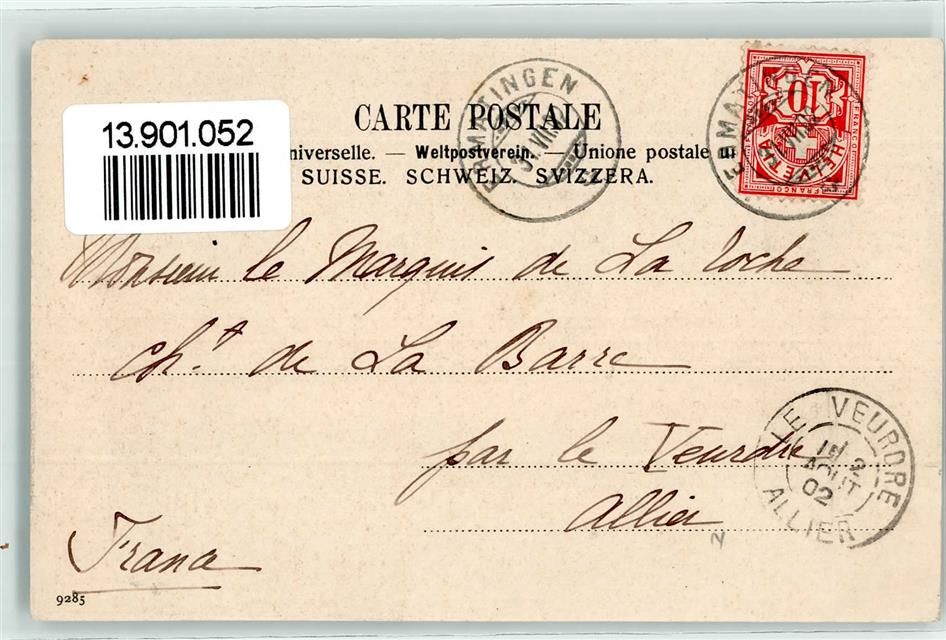 CARTE POSTALE
13.901.052
niverselle. — Weltpostverein. — Unione postale u
SUISSE. SCHWEIZ. SVIZZERA.
ERMATINGEN
ERMATINGEN
10
HELVETIA
FRANCO
Monsieur le Marquis de La Roche
Cht. de La Barre
par le Veurdre
Allier
France
LE VEURDRE
2
AOUT
02
ALLIER
9285